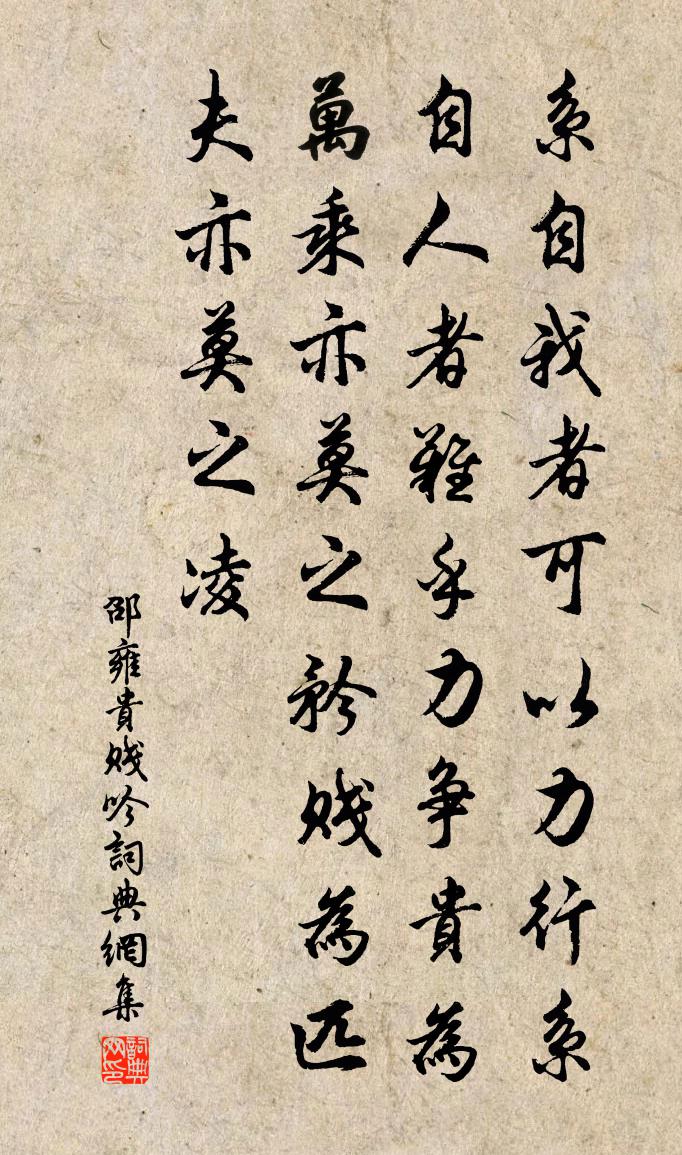 系自我者可以力行系
自人者難乎力争貴為
萬乘亦莫之矜賤為匹
夫亦莫之凌
邵雍貴賤吟詞典網集
詞典
网印